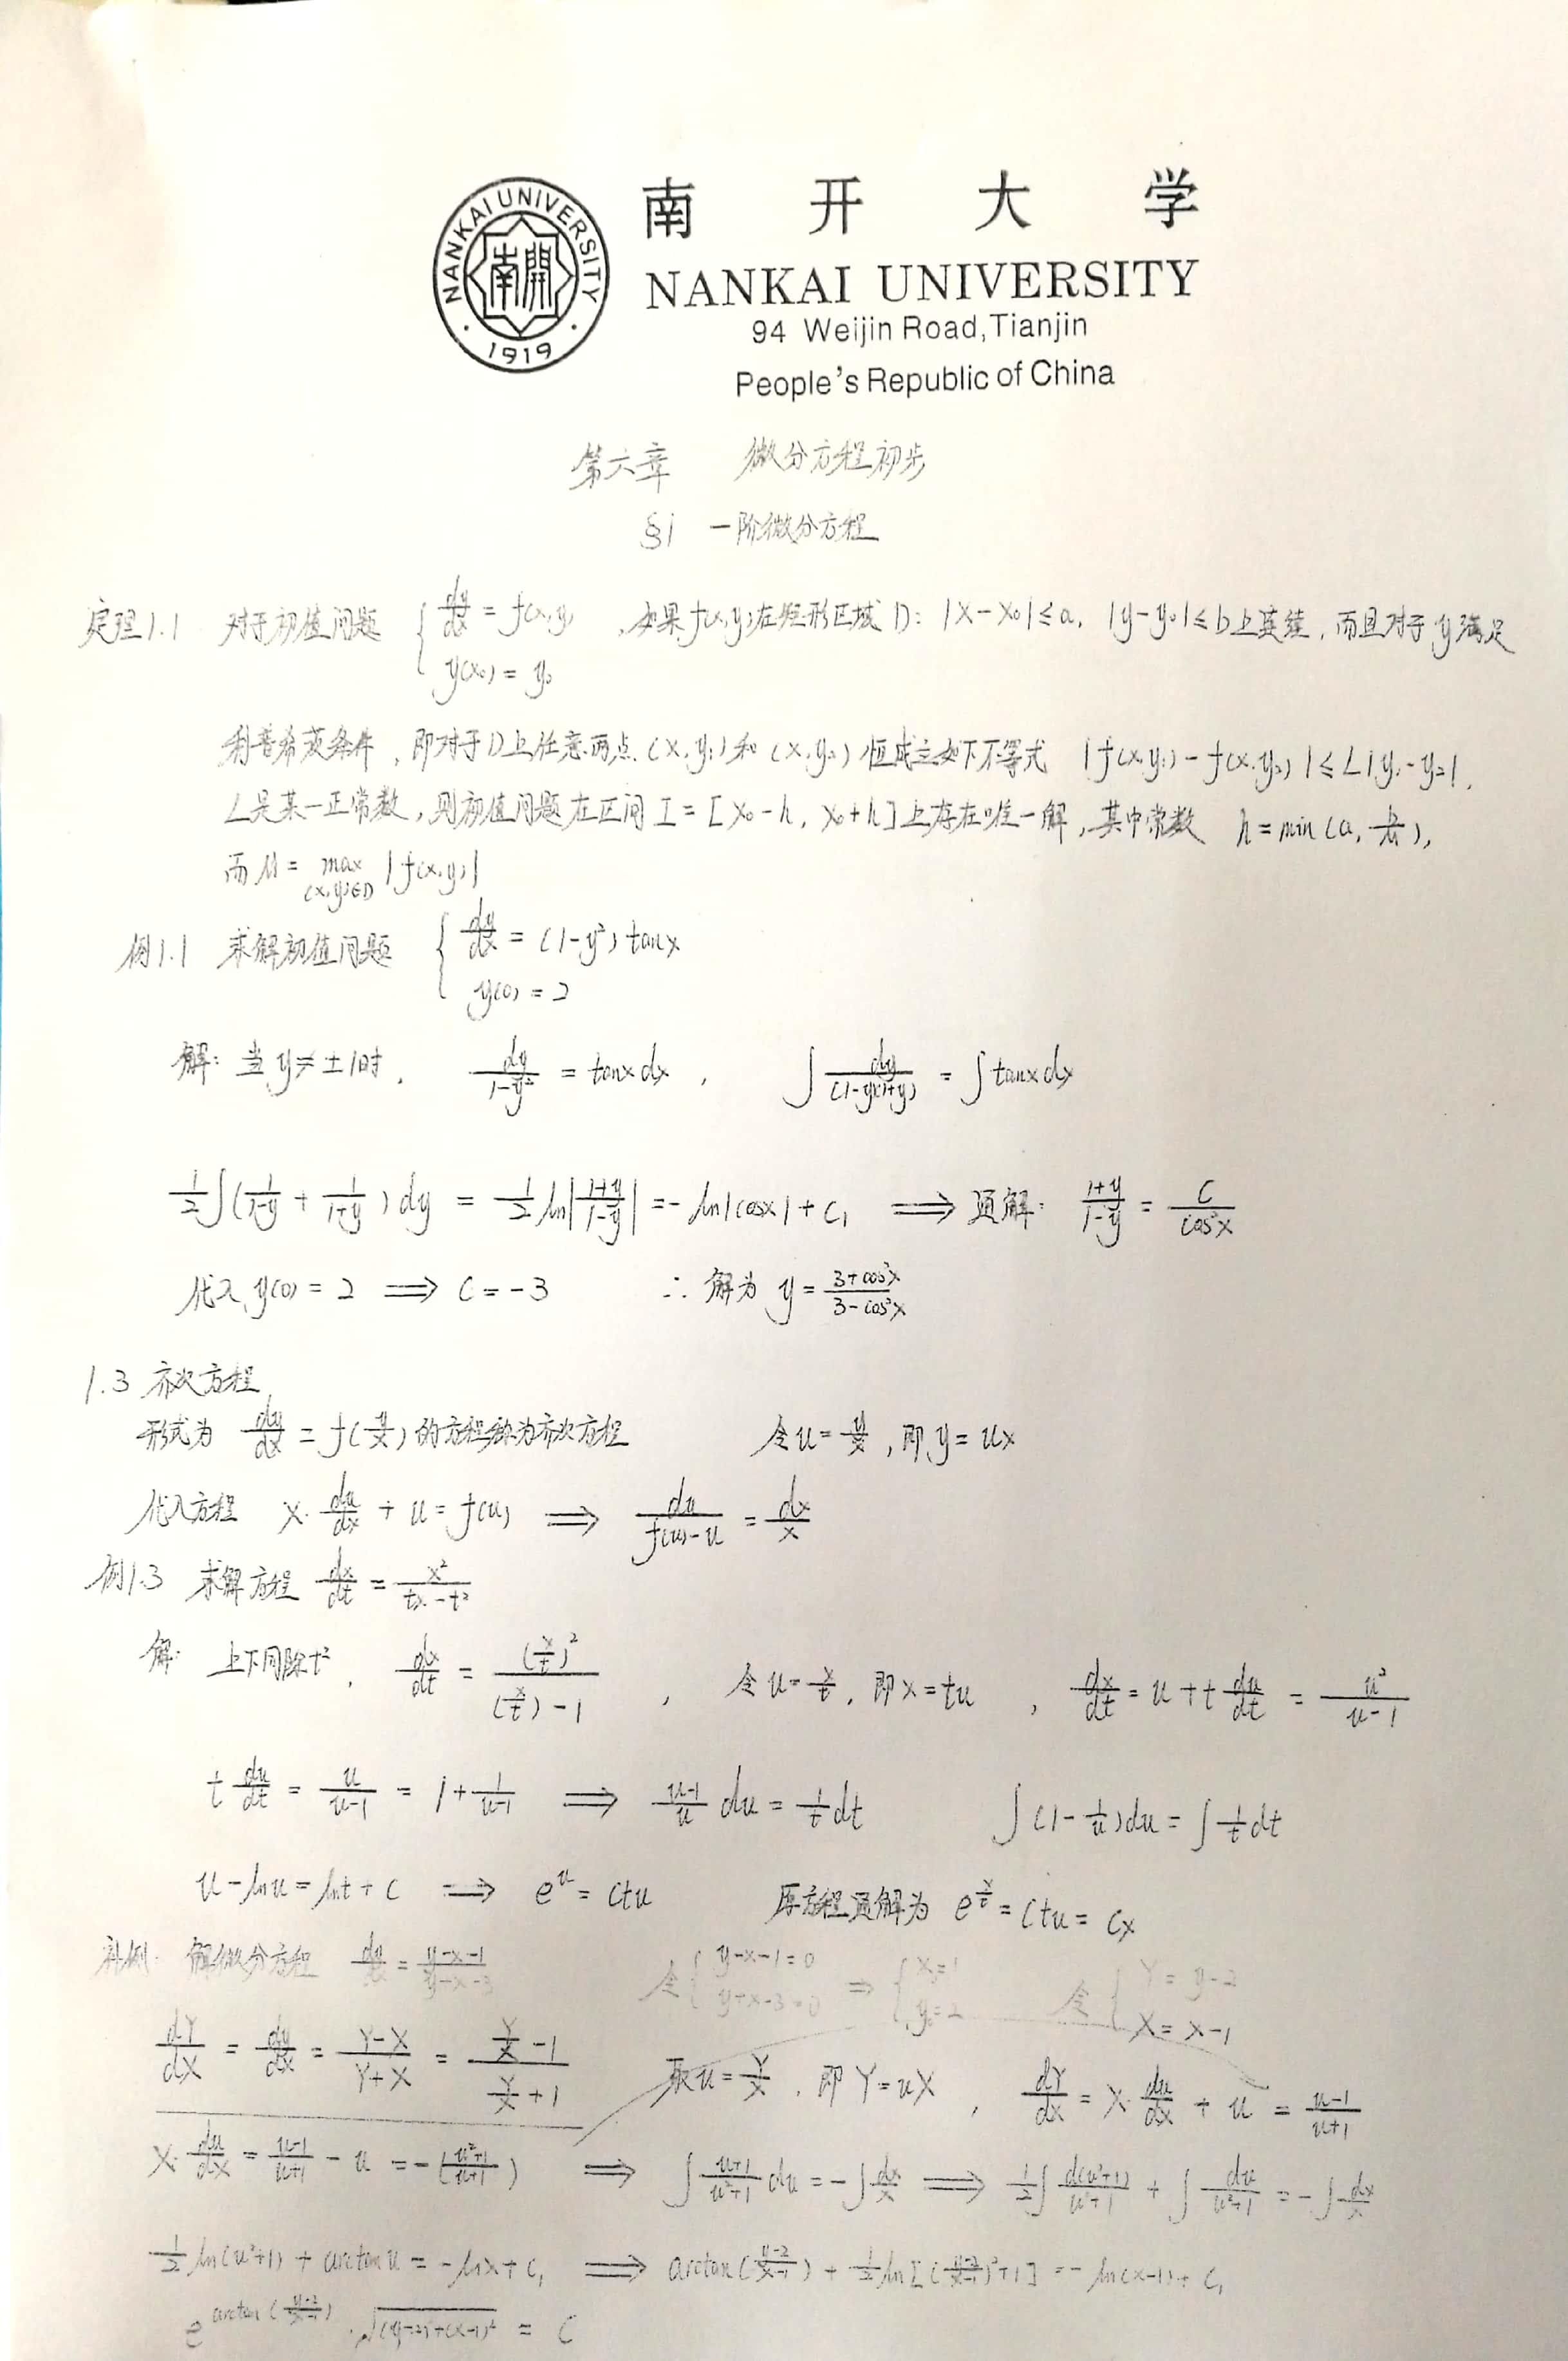 NANKAI UNIVERSITY
南開
· 1919 ·
南 开 大 学
NANKAI UNIVERSITY
94 Weijin Road, Tianjin
People's Republic of China
第六章 微分方程初步
§1 一阶微分方程
定理1.1 对于初值问题 { dy/dx = f(x,y), y(x₀) = y₀ ,如果f(x,y)在矩形区域D: |x-x₀|≤a, |y-y₀|≤b上连续,而且对于y满足
利普希茨条件,即对于D上任意两点(x,y₁)和(x,y₂)恒成立如下不等式 |f(x,y₁)-f(x,y₂)|≤L|y₁-y₂|,
L是某一正常数,则初值问题在区间I=[x₀-h, x₀+h]上存在唯一解,其中常数 h=min(a, b/M),
而M= max (x,y)∈D |f(x,y)|
例1.1 求解初值问题 { dy/dx = (1-y²)tanx, y(0) = 2
解: 当y≠±1时, dy/(1-y²) = tanxdx , ∫dy/((1-y)(1+y)) = ∫tanxdx
1/2∫(1/(1-y) + 1/(1+y))dy = 1/2 ln|(1+y)/(1-y)| = -ln|cosx|+C₁ ⟹ 通解: (1+y)/(1-y) = C/cos²x
代入y(0)=2 ⟹ C=-3 ∴解为 y=(3+cos²x)/(3-cos²x)
1.3 齐次方程
形式为 dy/dx = f(y/x)的方程称为齐次方程 令u=y/x,即y=ux
代入方程 x·du/dx + u = f(u) ⟹ du/(f(u)-u) = dx/x
例1.3 求解方程 dx/dt = x²/(tx-t²)
解: 上下同除t², dx/dt = (x/t)²/((x/t)-1) , 令u=x/t, 即x=tu , dx/dt = u+t du/dt = u²/(u-1)
t du/dt = u/(u-1) = 1+1/(u-1) ⟹ (u-1)/u du = 1/t dt ∫(1-1/u)du = ∫1/t dt
u-lnu=lnt+C ⟹ eᵘ=Ctu 原方程通解为 e^(x/t)=Ctu=Cx
补例: 解微分方程 dy/dx = (y-x-1)/(y+x-3) 令{ y-x-1=0, y+x-3=0 ⟹ { x=1, y=2 令{ Y=y-2, X=x-1
dY/dX = dy/dx = (Y-X)/(Y+X) = (Y/X -1)/(Y/X +1) 取u=Y/X, 即Y=uX , dY/dX = X·du/dX + u = (u-1)/(u+1)
X·du/dX = (u-1)/(u+1) - u = -((u²+1)/(u+1)) ⟹ ∫(u+1)/(u²+1) du = -∫dx/x ⟹ 1/2∫d(u²+1)/(u²+1) + ∫du/(u²+1) = -∫dx/x
1/2 ln(u²+1) + arctanu = -lnx+C₁ ⟹ arctan((y-2)/(x-1)) + 1/2 ln[((y-2)/(x-1))²+1] = -ln(x-1)+C₁
e^(arctan((y-2)/(x-1)))·√((y-2)²+(x-1)²) = C